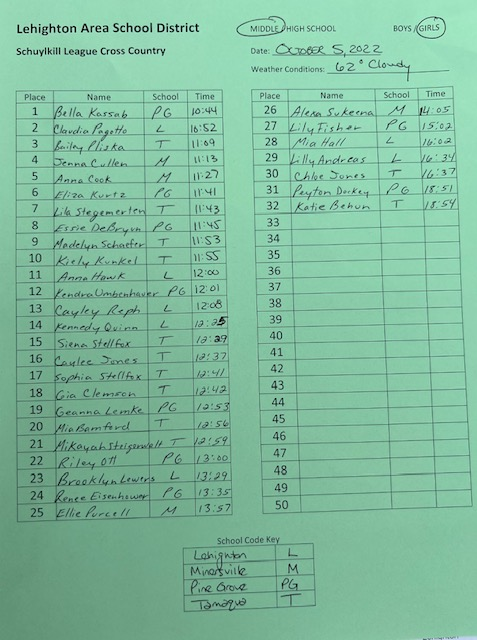 Lehighton Area School District
MIDDLE / HIGH SCHOOL BOYS / GIRLS
Schuylkill League Cross Country
Date: OCTOBER 5, 2022
Weather Conditions: 62° Cloudy
Place Name School Time
1 Bella Kassab PG 10:44
2 Claudia Pagotto L 10:52
3 Bailey Pliska T 11:09
4 Jenna Cullen M 11:13
5 Anna Cook M 11:27
6 Eliza Kurtz PG 11:41
7 Lila Stegemerten T 11:43
8 Essie DeBryun PG 11:45
9 Madelyn Schaefer T 11:53
10 Kiely Kunkel T 11:55
11 Anna Hawk L 12:00
12 Kendra Umbenhauer PG 12:01
13 Cayley Reph L 12:08
14 Kennedy Quinn L 12:25
15 Siena Stellfox T 12:29
16 Caylee Jones T 12:37
17 Sophia Stellfox T 12:41
18 Gia Clemson T 12:42
19 Geanna Lemke PG 12:53
20 Mia Bamford T 12:56
21 Mikayah Steigerwalt T 12:59
22 Riley Ott PG 13:00
23 Brooklyn Lewers L 13:29
24 Renee Eisenhower PG 13:35
25 Ellie Purcell M 13:57
Place Name School Time
26 Alexa Sukeena M 14:05
27 Lily Fisher PG 15:02
28 Mia Hall L 16:02
29 Lilly Andreas L 16:34
30 Chloe Jones T 16:37
31 Peyton Dorkey PG 18:51
32 Katie Behun T 18:54
33
34
35
36
37
38
39
40
41
42
43
44
45
46
47
48
49
50
School Code Key
Lehighton L
Minersville M
Pine Grove PG
Tamaqua T